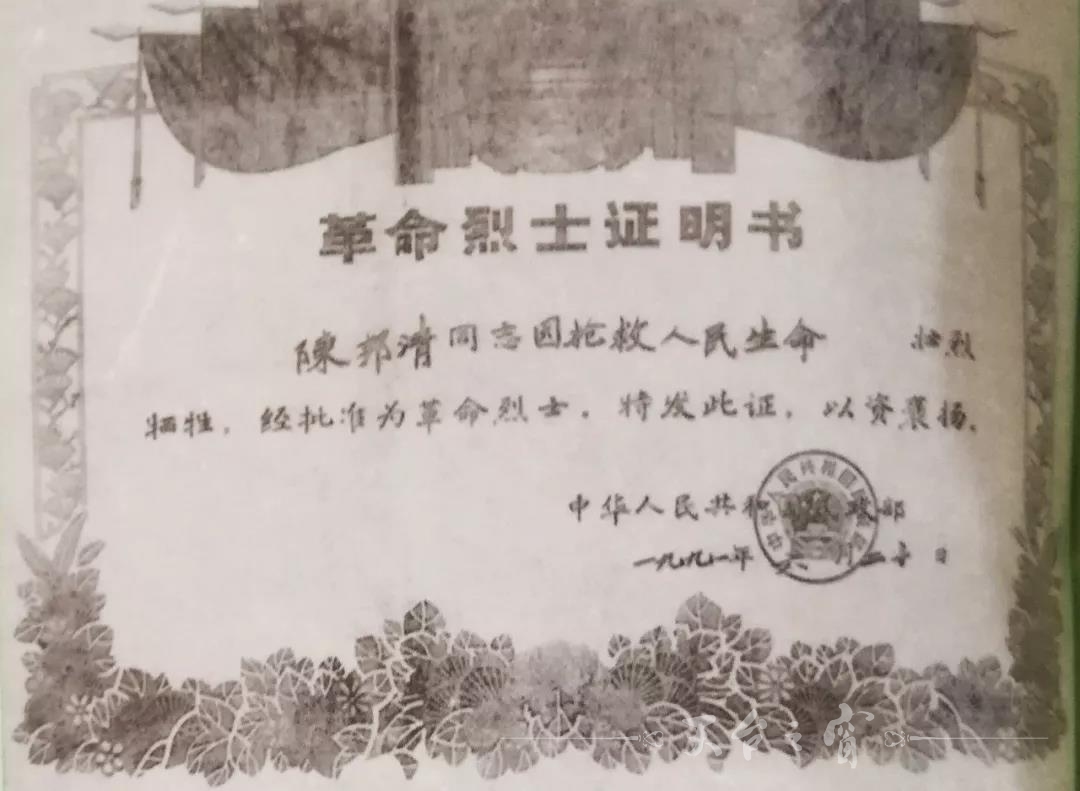 革命烈士证明书
陳邦清同志因抢救人民生命 壮烈
牺牲，经批准为革命烈士。特发此证，以资褒扬。
中华人民共和国民政部
一九九一年六月二十日